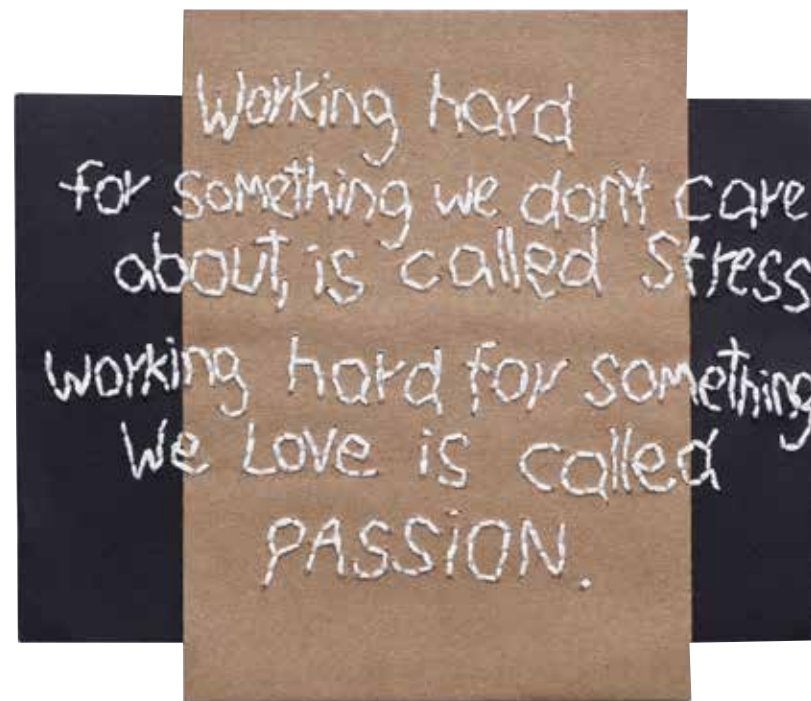 Working hard
for something we don't care
about, is called Stress
Working hard for something
We Love is called
PASSiON.